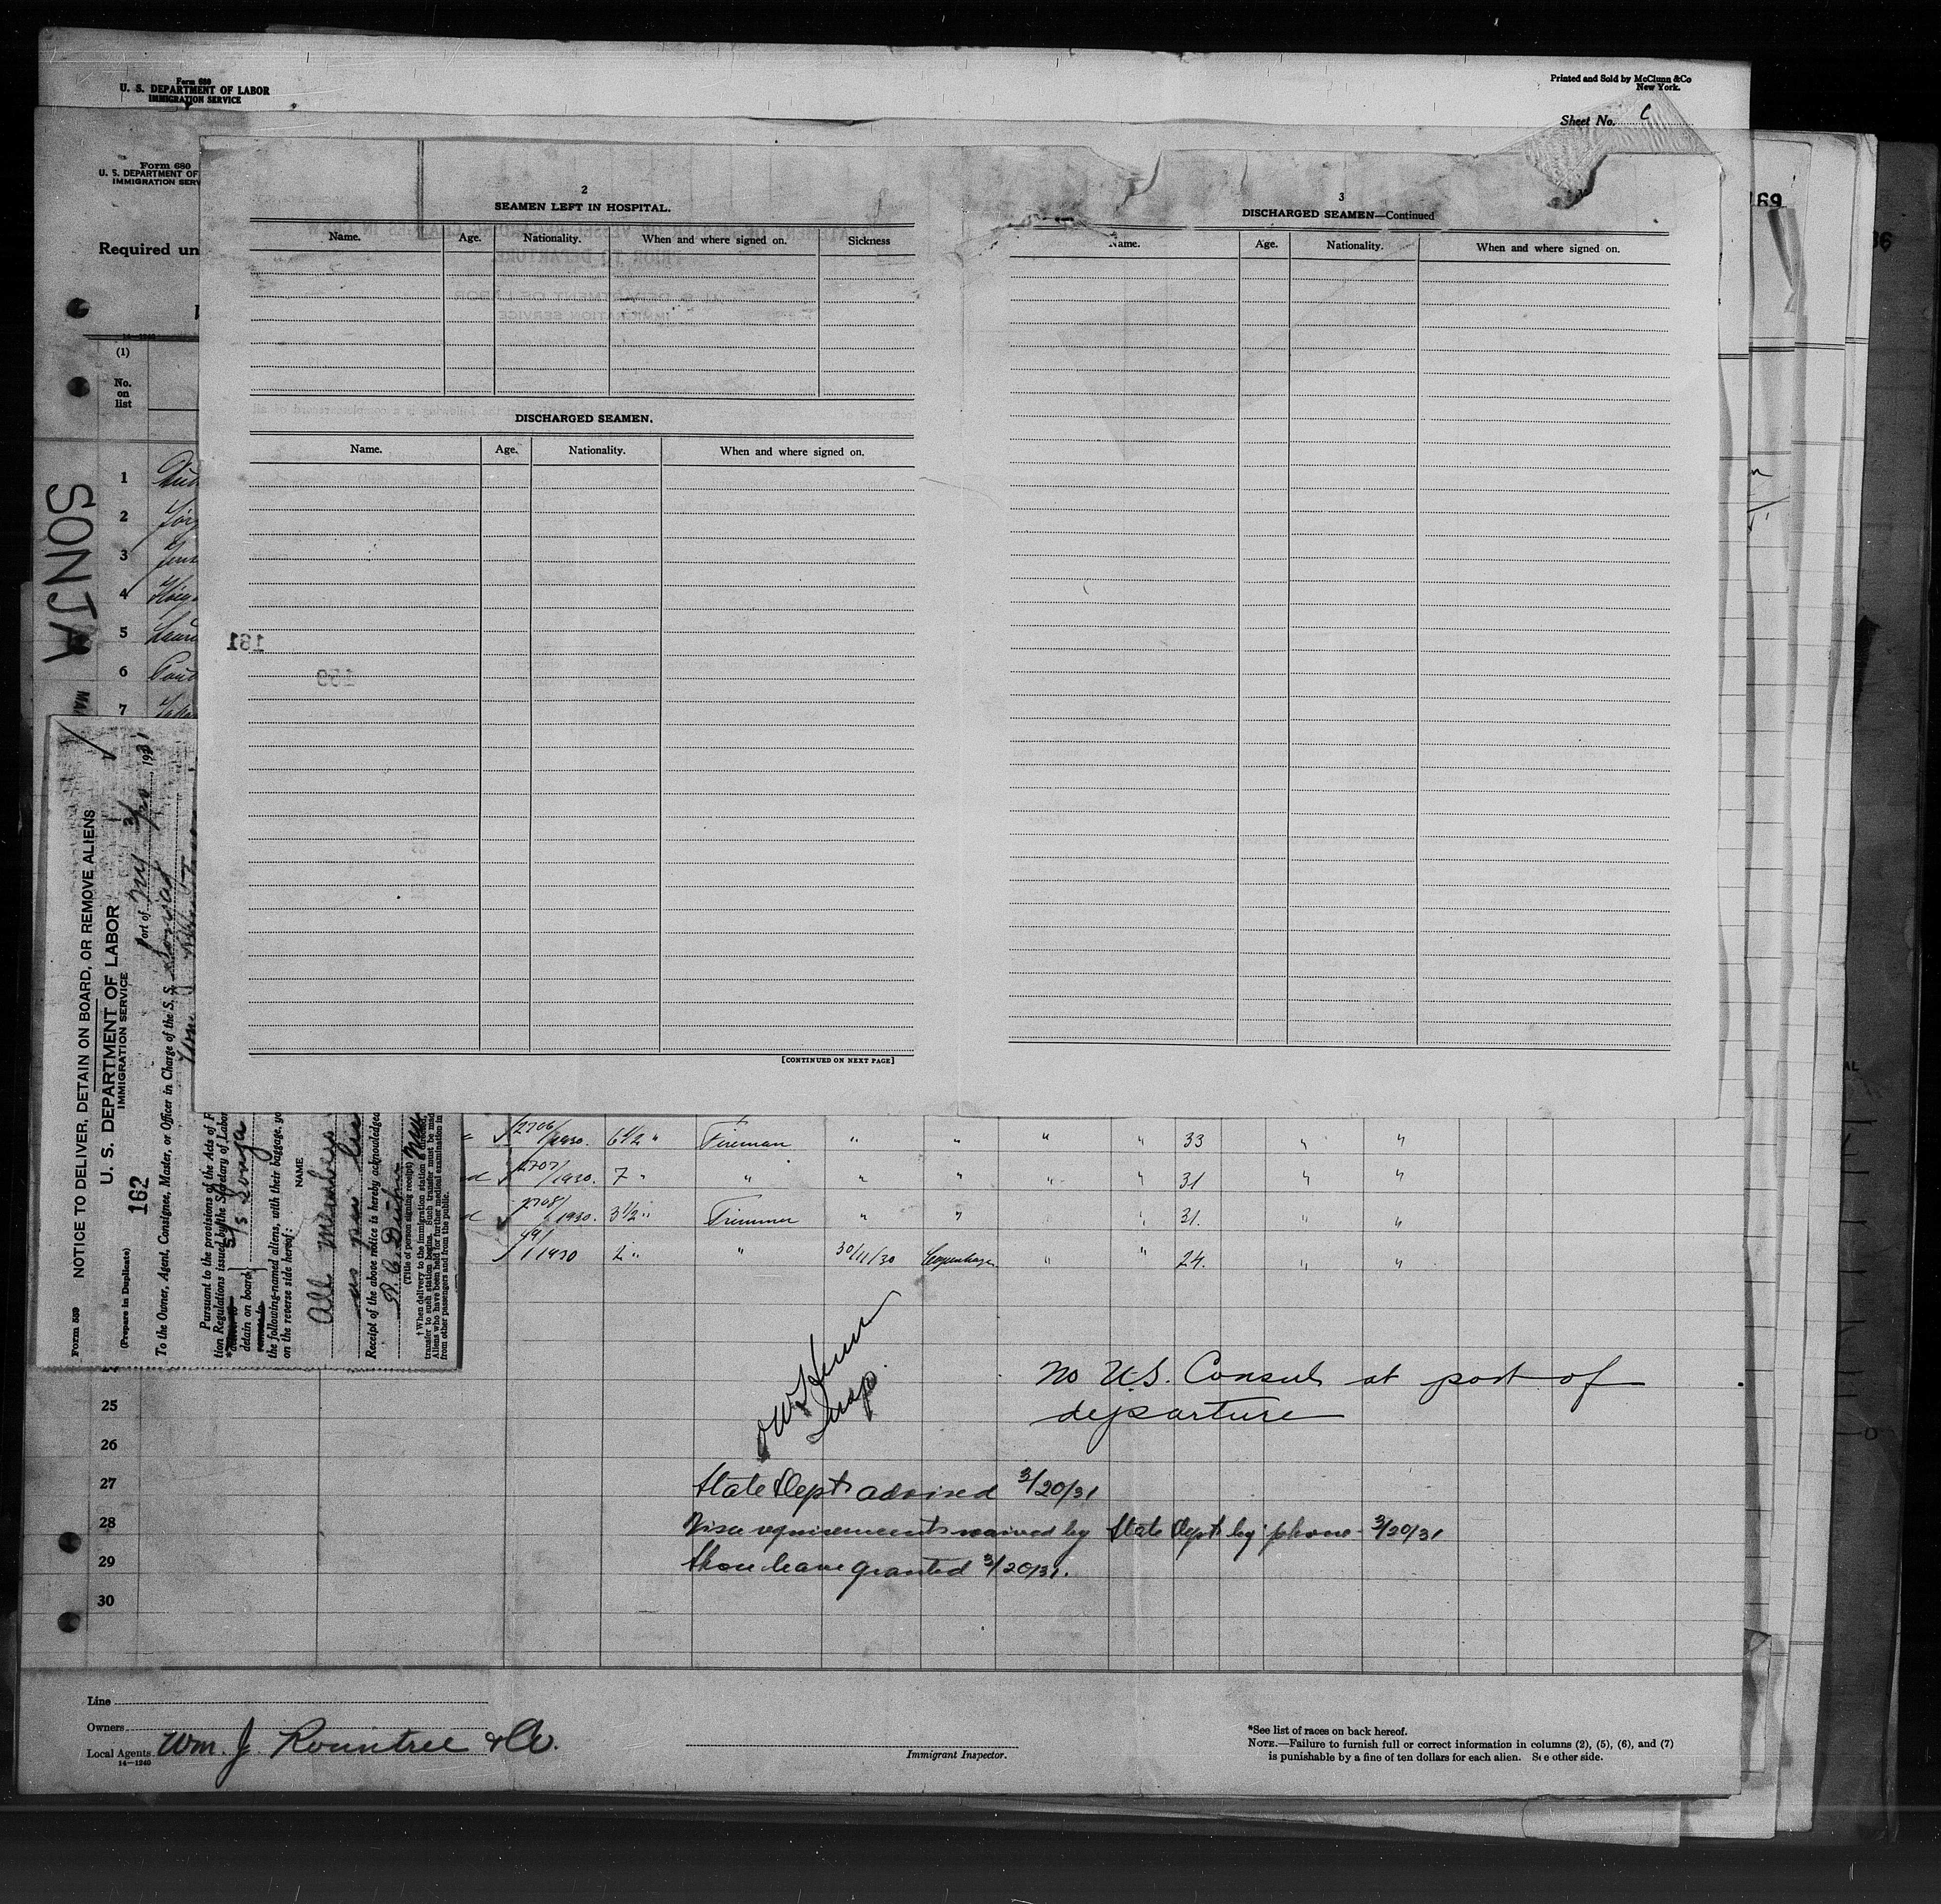 Form 680
U. S. DEPARTMENT OF LABOR
IMMIGRATION SERVICE
Printed and Sold by McClunn & Co
New York.
Sheet No. C
Form 680
U. S. DEPARTMENT OF
IMMIGRATION SERV
Required un
169
2
SEAMEN LEFT IN HOSPITAL.
Name. Age. Nationality. When and where signed on. Sickness
DISCHARGED SEAMEN.
Name. Age. Nationality. When and where signed on.
[CONTINUED ON NEXT PAGE]
3
DISCHARGED SEAMEN—Continued
Name. Age. Nationality. When and where signed on.
14—1240
(1)
No.
on
list
1
2
3
4
5
6
7
SONJA
161
159
Form 559
NOTICE TO DELIVER, DETAIN ON BOARD, OR REMOVE ALIENS
(Prepare in Duplicate)
162
U. S. DEPARTMENT OF LABOR
IMMIGRATION SERVICE
Port of NY 3/20, 1931
To the Owner, Agent, Consignee, Master, or Officer in Charge of the S. S.
Pursuant to the provisions of the Acts of F
tion Regulations issued by the Secretary of Labor
detain on board S/S Sonja
the following-named aliens, with their baggage, yo
on the reverse side hereof:
NAME
All Members
as per
Receipt of the above notice is hereby acknowledged
(Title of person signing receipt)
† When delivery to the immigration station is directed,
transfer to such station begins. Such transfer must be mad
Aliens who have been held for further medical examination in
from other passengers and from the public.
" 2706/1930. 6 1/2 " Fireman " " " " 33 " "
d 2707/1930. 7 " " " " " " 31 " "
d 2708/1930. 3 1/2 " Trimmer " " " " 31. " "
1930 2 " " 30/11/30 Copenhagen " " 24. " "
Insp.
No U.S. Consul at port of
departure
25
26
27 State Dept advised 3/20/31
28 Visa requirements waived by State Dept by phone - 3/20/31
29 Shore leave granted 3/20/31.
30
Line
Owners
Local Agents Wm. J. Rountree & Co.
14—1240
Immigrant Inspector.
*See list of races on back hereof.
NOTE.—Failure to furnish full or correct information in columns (2), (5), (6), and (7)
is punishable by a fine of ten dollars for each alien. See other side.